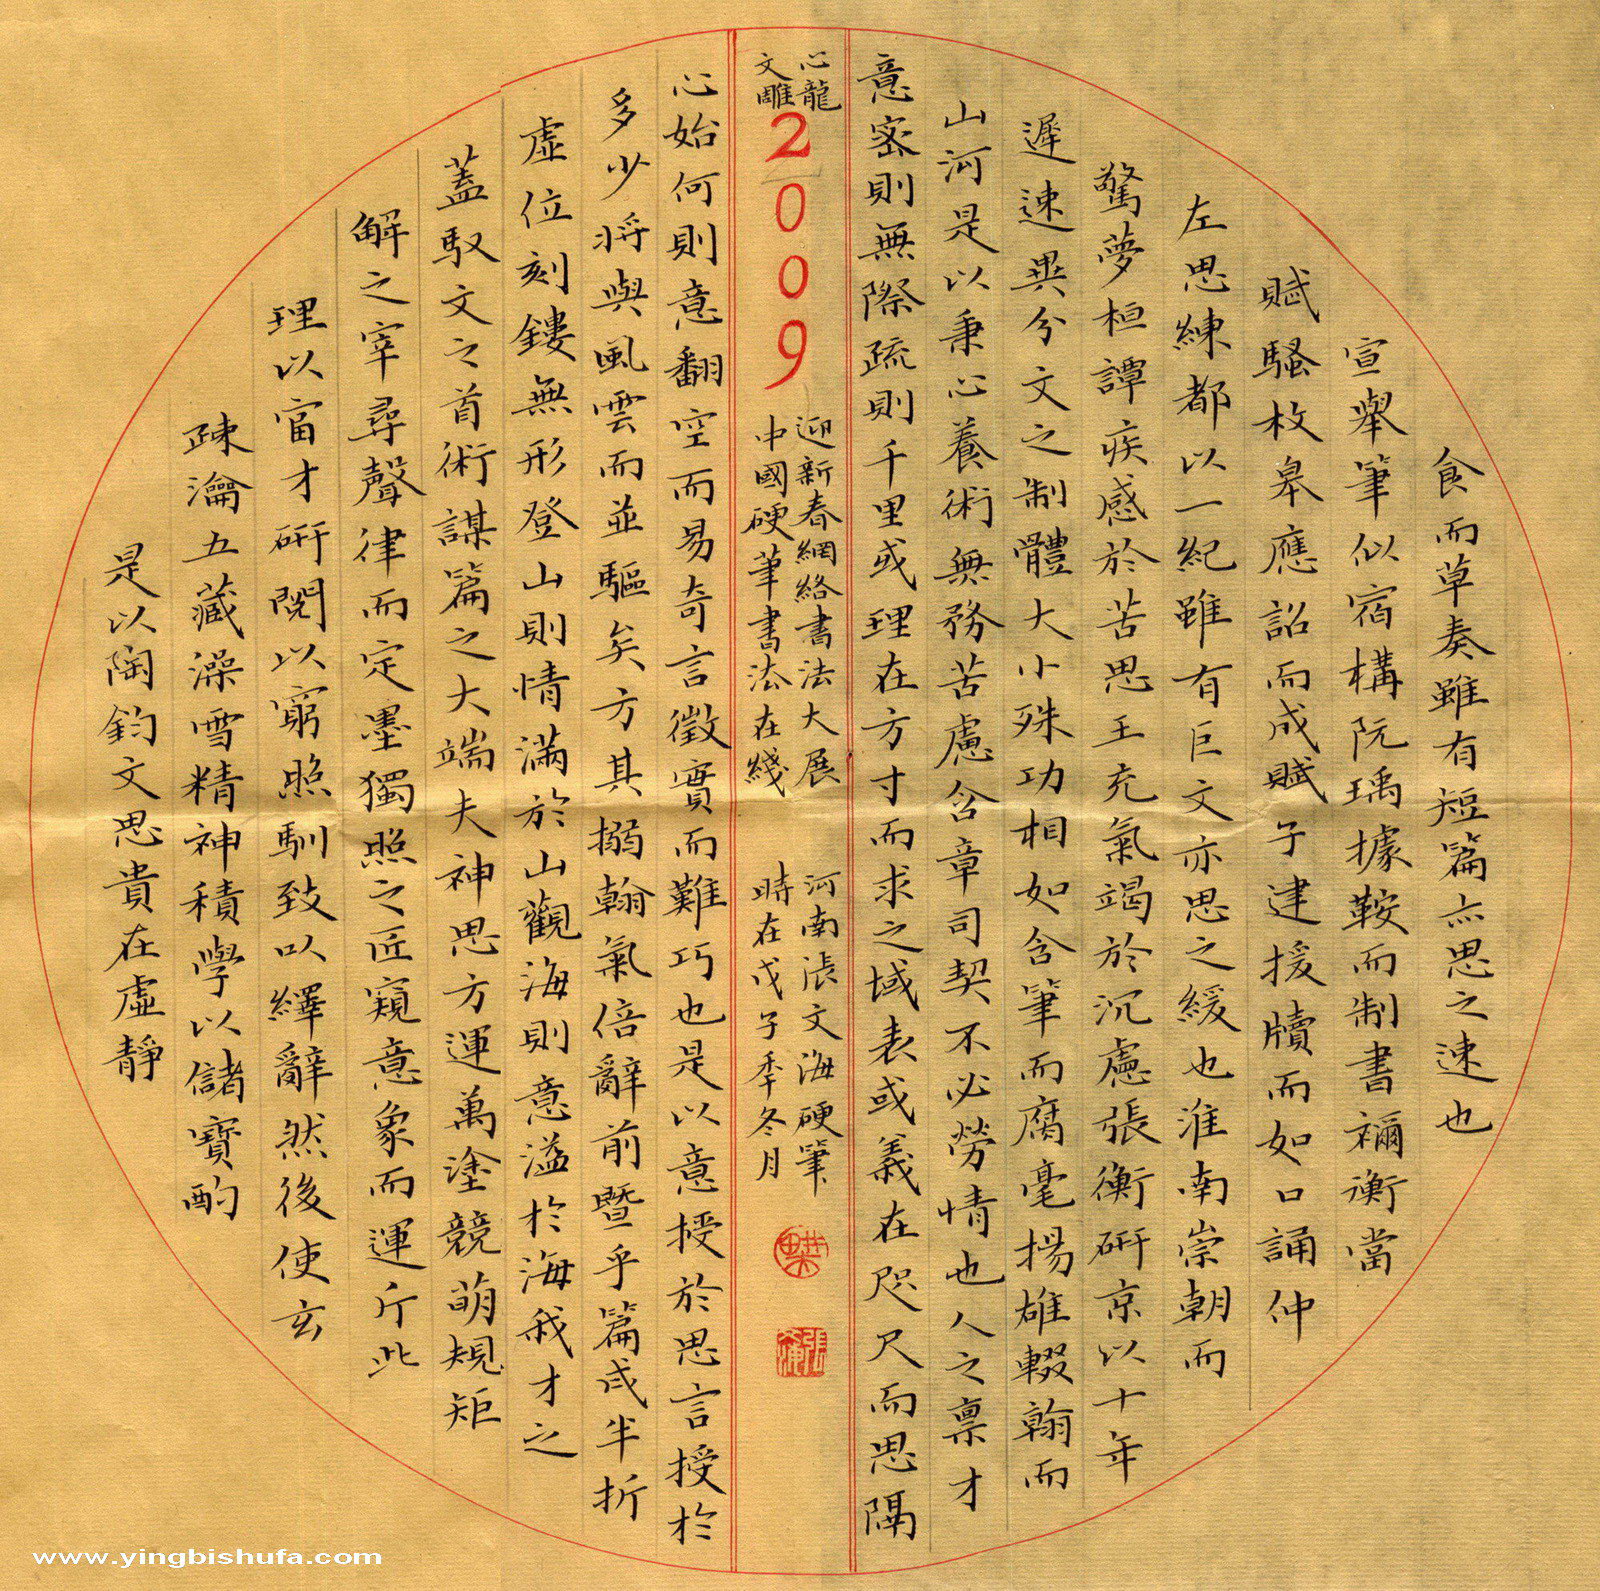 是以陶鈞文思貴在虛靜
疎瀹五藏澡雪精神積學以儲寶酌
理以富才研閱以窮照馴致以繹辭然後使玄
解之宰尋聲律而定墨獨照之匠窺意象而運斤此
蓋馭文之首術謀篇之大端夫神思方運萬塗競萌規矩
虛位刻鏤無形登山則情滿於山觀海則意溢於海我才之
多少將與風雲而並驅矣方其搦翰氣倍辭前暨乎篇成半折
心始何則意翻空而易奇言徵實而難巧也是以意授於思言授於
文心
雕龍
2009
中國硬筆書法在綫
迎新春網絡書法大展
河南張文海硬筆
時在戊子季冬月
意密則無際疏則千里或理在方寸而求之域表或義在咫尺而思隔
山河是以秉心養術無務苦慮含章司契不必勞情也人之稟才
遲速異分文之制體大小殊功相如含筆而腐毫揚雄輟翰而
驚夢桓譚疾感於苦思王充氣竭於沉慮張衡研京以十年
左思練都以一紀雖有巨文亦思之緩也淮南崇朝而
賦騷枚皋應詔而成賦子建援牘而如口誦仲
宣舉筆似宿構阮瑀據鞍而制書禰衡當
食而草奏雖有短篇亦思之速也
www.yingbishufa.com